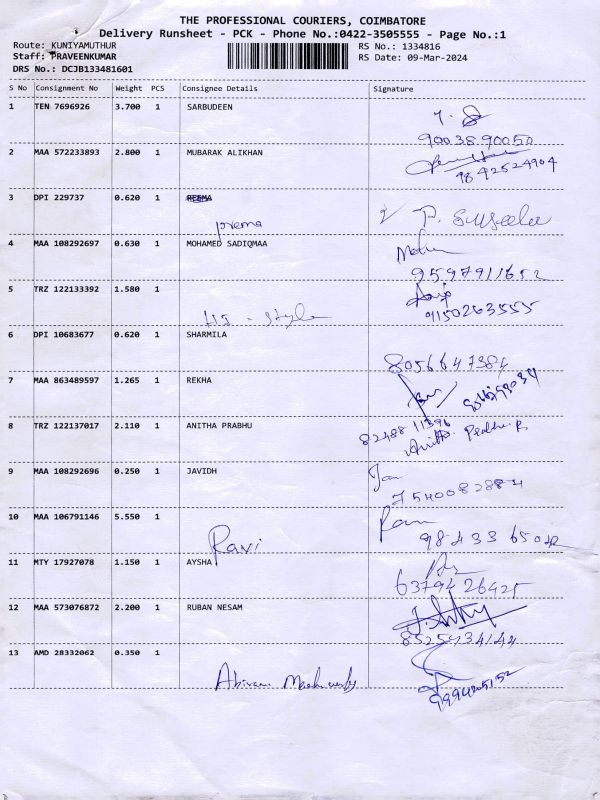 THE PROFESSIONAL COURIERS, COIMBATORE
Delivery Runsheet - PCK - Phone No.:0422-3505555 - Page No.:1
Route: KUNIYAMUTHUR
RS No.: 1334816
Staff: PRAVEENKUMAR
RS Date: 09-Mar-2024
DRS No.: DCJB133481601
S No Consignment No Weight PCS Consignee Details Signature
1 TEN 7696926 3.700 1 SARBUDEEN
90038 90050
2 MAA 572233893 2.800 1 MUBARAK ALIKHAN
9842524904
3 DPI 229737 0.620 1 REEMA
prema
P. Suseela
4 MAA 108292697 0.630 1 MOHAMED SADIQMAA
9597911652
5 TRZ 122133392 1.580 1
9150263555
HJ - Style
6 DPI 10683677 0.620 1 SHARMILA
8056647384
7 MAA 863489597 1.265 1 REKHA
8 TRZ 122137017 2.110 1 ANITHA PRABHU
82488 11396
9 MAA 108292696 0.250 1 JAVIDH
7540082884
10 MAA 106791146 5.550 1
Ravi
98433 65042
11 MTY 17927078 1.150 1 AYSHA
6379426425
12 MAA 573076872 2.200 1 RUBAN NESAM
8525934144
13 AMD 28332062 0.350 1
9994205152